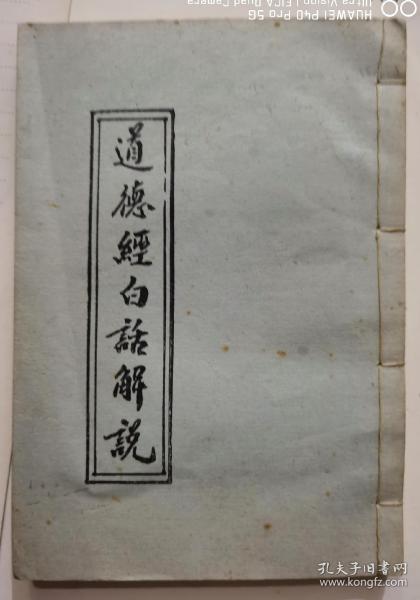 HUAWEI P40 Pro 5G
Ultra Vision LEICA Quad Camera
道德經白話解説
孔夫子旧书网
www.kongfz.com